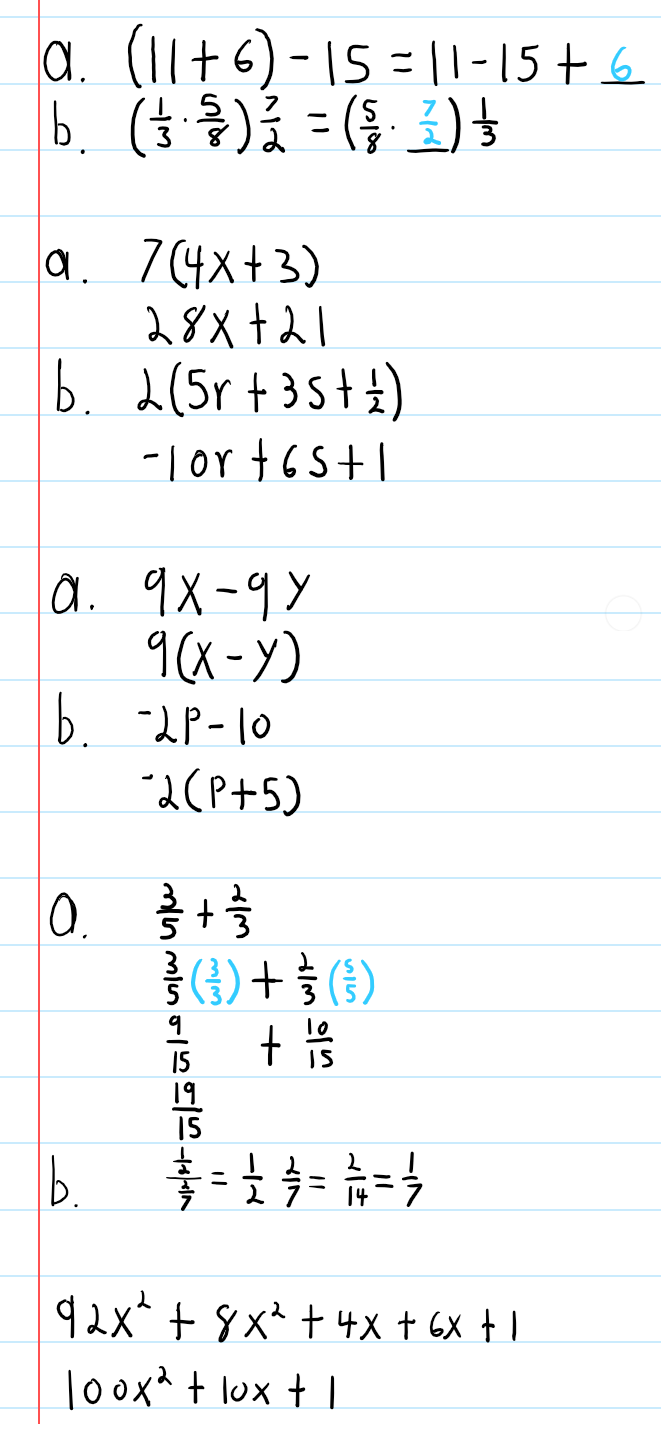 a. (11+6)-15 = 11-15+6
b. (1/3 · 5/8) 7/2 = (5/8 · 7/2) 1/3
a. 7(4x+3)
28x+21
b. 2(5r+3s+1/2)
-10r+6s+1
a. 9x-9y
9(x-y)
b. -2p-10
-2(p+5)
a. 3/5 + 2/3
3/5 (3/3) + 2/3 (5/5)
9/15 + 10/15
19/15
b. (1/2)/(2/7) = 1/2 2/7 = 2/14 = 1/7
92x² + 8x² + 4x + 6x + 1
100x² + 10x + 1